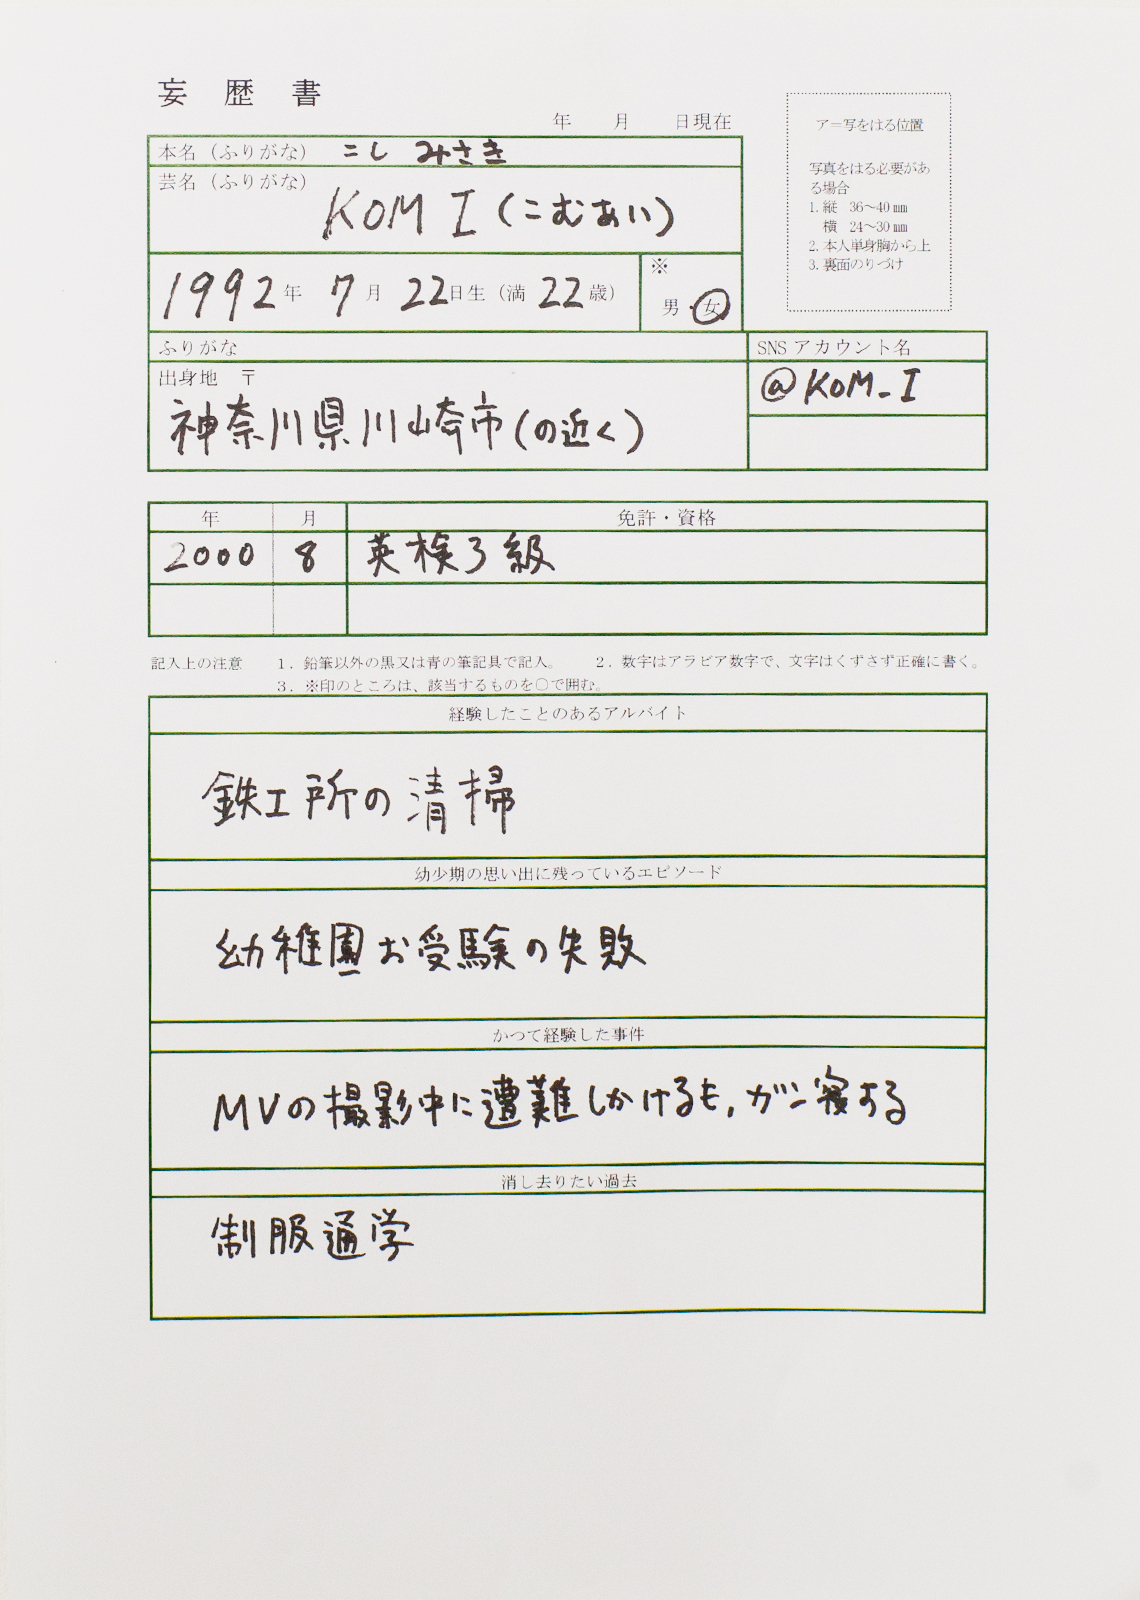 妄歴書
年 月 日現在
本名（ふりがな） こし みさき
芸名（ふりがな）
KOM I（こむあい）
1992年 7月 22日生（満 22歳）
※
男・女
ふりがな
出身地 〒
神奈川県川崎市(の近く)
SNS アカウント名
@KOM_I
ア＝写をはる位置
写真をはる必要があ
る場合
1. 縦 36～40 mm
横 24～30 mm
2. 本人単身胸から上
3. 裏面のりづけ
年 月 免許・資格
2000 8 英検3級
記入上の注意 1．鉛筆以外の黒又は青の筆記具で記入。 2．数字はアラビア数字で、文字はくずさず正確に書く。
3．※印のところは、該当するものを○で囲む。
経験したことのあるアルバイト
鉄工所の清掃
幼少期の思い出に残っているエピソード
幼稚園お受験の失敗
かつて経験した事件
MVの撮影中に遭難しかけるも，ガン寝する
消し去りたい過去
制服通学